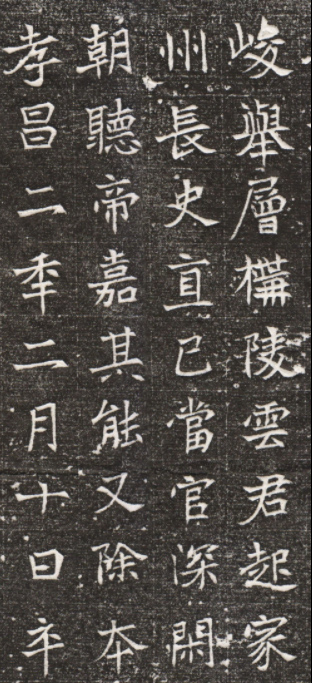 峻舉層構陵雲君起家
州長史直已當官深閑
朝聽帝嘉其能又除本
孝昌二秊二月十日卒